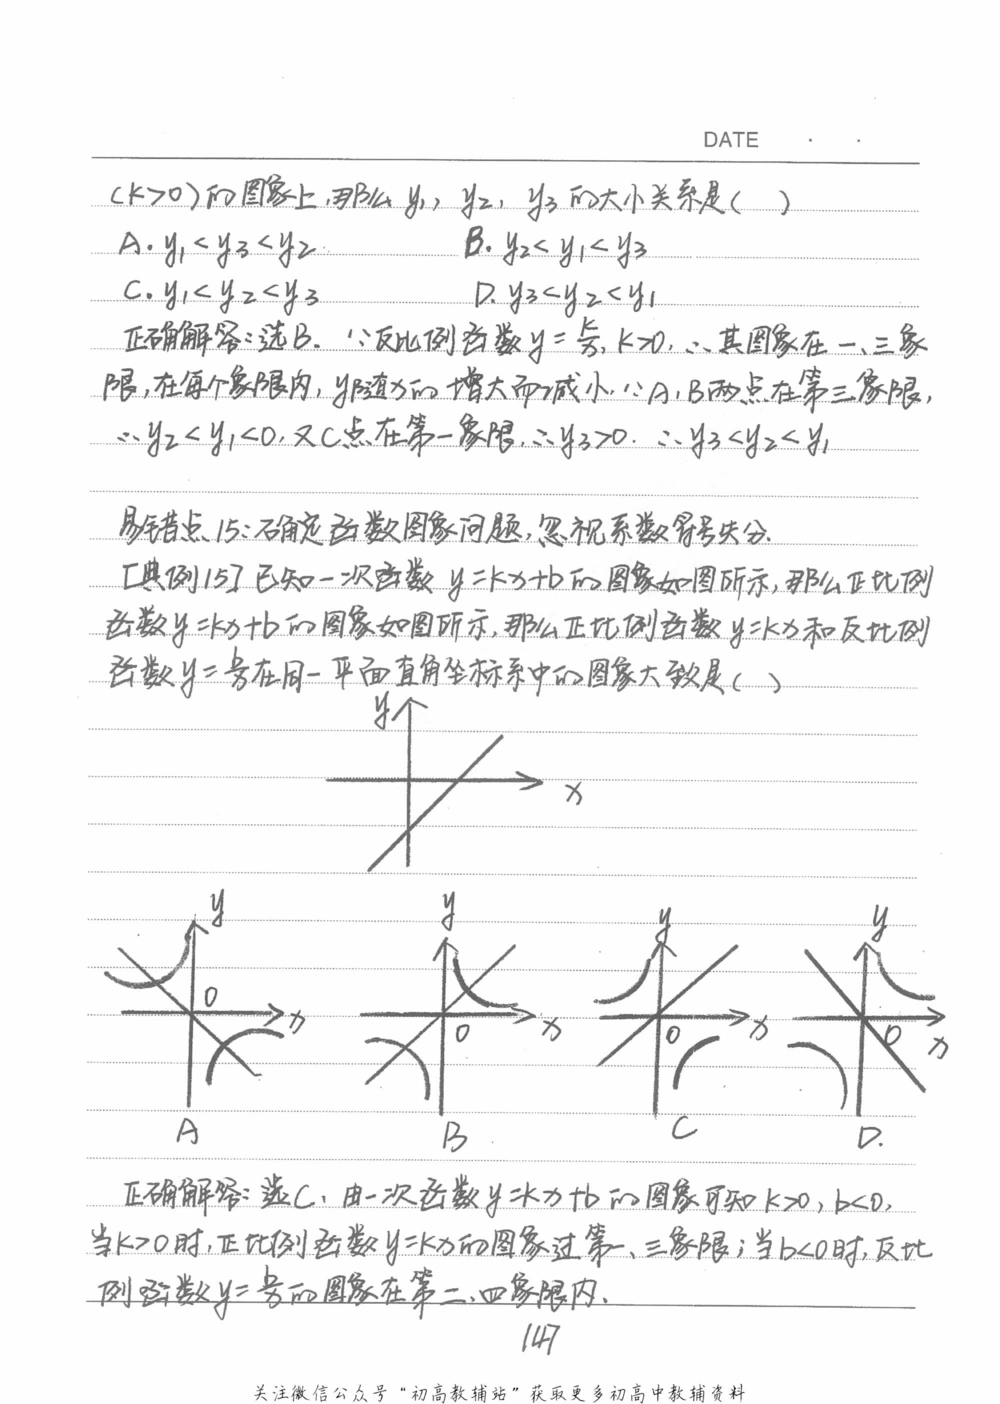 DATE · ·
(k>0)的图象上,那么 y₁, y₂, y₃ 的大小关系是( )
A. y₁<y₃<y₂ B. y₂<y₁<y₃
C. y₁<y₂<y₃ D. y₃<y₂<y₁
正确解答:选B. ∵反比例函数y=k/x, k>0, ∴其图象在一、三象
限,在每个象限内,y随x的增大而减小.∵A,B两点在第三象限,
∴y₂<y₁<0,又C点在第一象限,∴y₃>0. ∴y₃<y₂<y₁
易错点15:确定函数图象问题,忽视系数符号失分.
[典例15]已知一次函数 y=kx+b的图象如图所示,那么正比例
函数y=kx+b的图象如图所示,那么正比例函数y=kx和反比例
函数y=b/x在同一平面直角坐标系中的图象大致是( )
y
x
y y y y
O x O x O x O x
A B C D.
正确解答:选C,由一次函数y=kx+b的图象可知k>0,b<0,
当k>0时,正比例函数y=kx的图象过第一、三象限;当b<0时,反比
例函数y=b/x的图象在第二、四象限内.
147
关注微信公众号“初高教辅站”获取更多初高中教辅资料